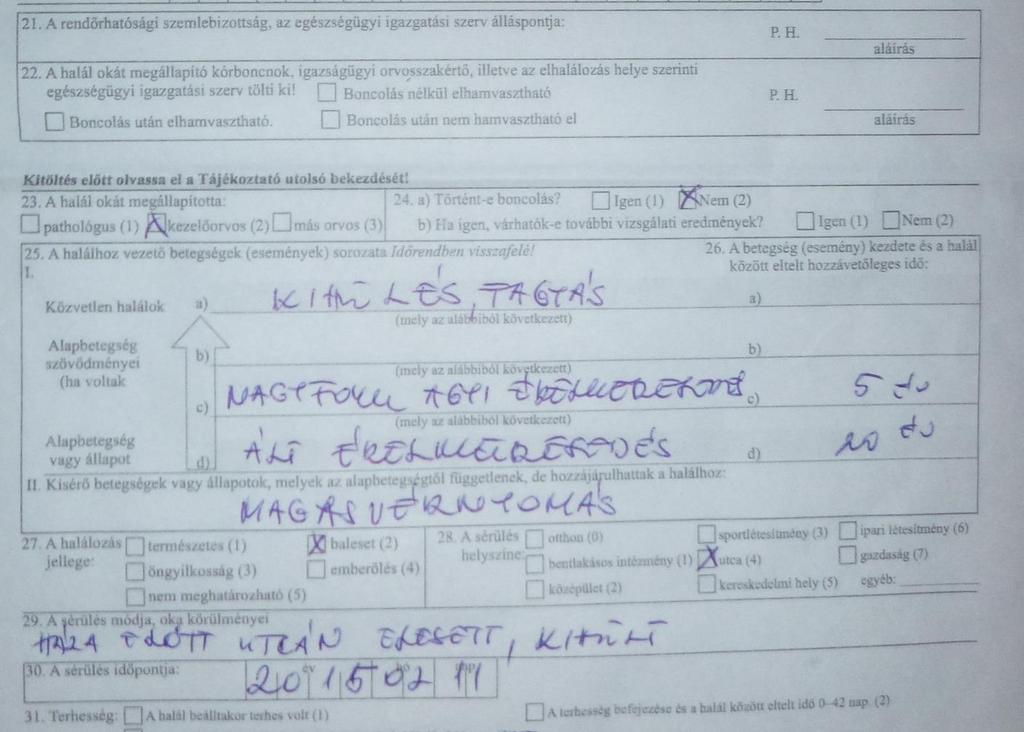 21. A rendőrhatósági szemlebizottság, az egészségügyi igazgatási szerv álláspontja:
P. H.
aláírás
22. A halál okát megállapító kórboncnok, igazságügyi orvosszakértő, illetve az elhalálozás helye szerinti
egészségügyi igazgatási szerv tölti ki! Boncolás nélkül elhamvasztható P. H.
Boncolás után elhamvasztható. Boncolás után nem hamvasztható el aláírás
Kitöltés előtt olvassa el a Tájékoztató utolsó bekezdését!
23. A halál okát megállapította: 24. a) Történt-e boncolás? Igen (1) X Nem (2)
pathológus (1) X kezelőorvos (2) más orvos (3) b) Ha igen, várhatók-e további vizsgálati eredmények? Igen (1) Nem (2)
25. A halálhoz vezető betegségek (események) sorozata Időrendben visszafelé! 26. A betegség (esemény) kezdete és a halál
I. között eltelt hozzávetőleges idő:
Közvetlen halálok a) KIHŰLÉS, FAGYÁS a)
(mely az alábbiból következett)
Alapbetegség
szövődményei b) b)
(ha voltak (mely az alábbiból következett)
c) NAGYFOKU AGYI ÉRELMESZESEDÉS c) 5 év
(mely az alábbiból következett)
Alapbetegség
vagy állapot d) ÁLT ÉRELMESZESEDÉS d) 20 év
II. Kísérő betegségek vagy állapotok, melyek az alapbetegségtől függetlenek, de hozzájárulhattak a halálhoz:
MAGAS VÉRNYOMÁS
27. A halálozás természetes (1) X baleset (2) 28. A sérülés otthon (0) sportlétesítmény (3) ipari létesítmény (6)
jellege: öngyilkosság (3) emberölés (4) helyszíne: bentlakásos intézmény (1) X utca (4) gazdaság (7)
nem meghatározható (5) középület (2) kereskedelmi hely (5) egyéb:
29. A sérülés módja, oka körülményei
HÁZA ELŐTT UTCÁN ELESETT, KIHŰLT
30. A sérülés időpontja: 2015 02 11
31. Terhesség: A halál beálltakor terhes volt (1) A terhesség befejezése és a halál között eltelt idő 0-42 nap. (2)